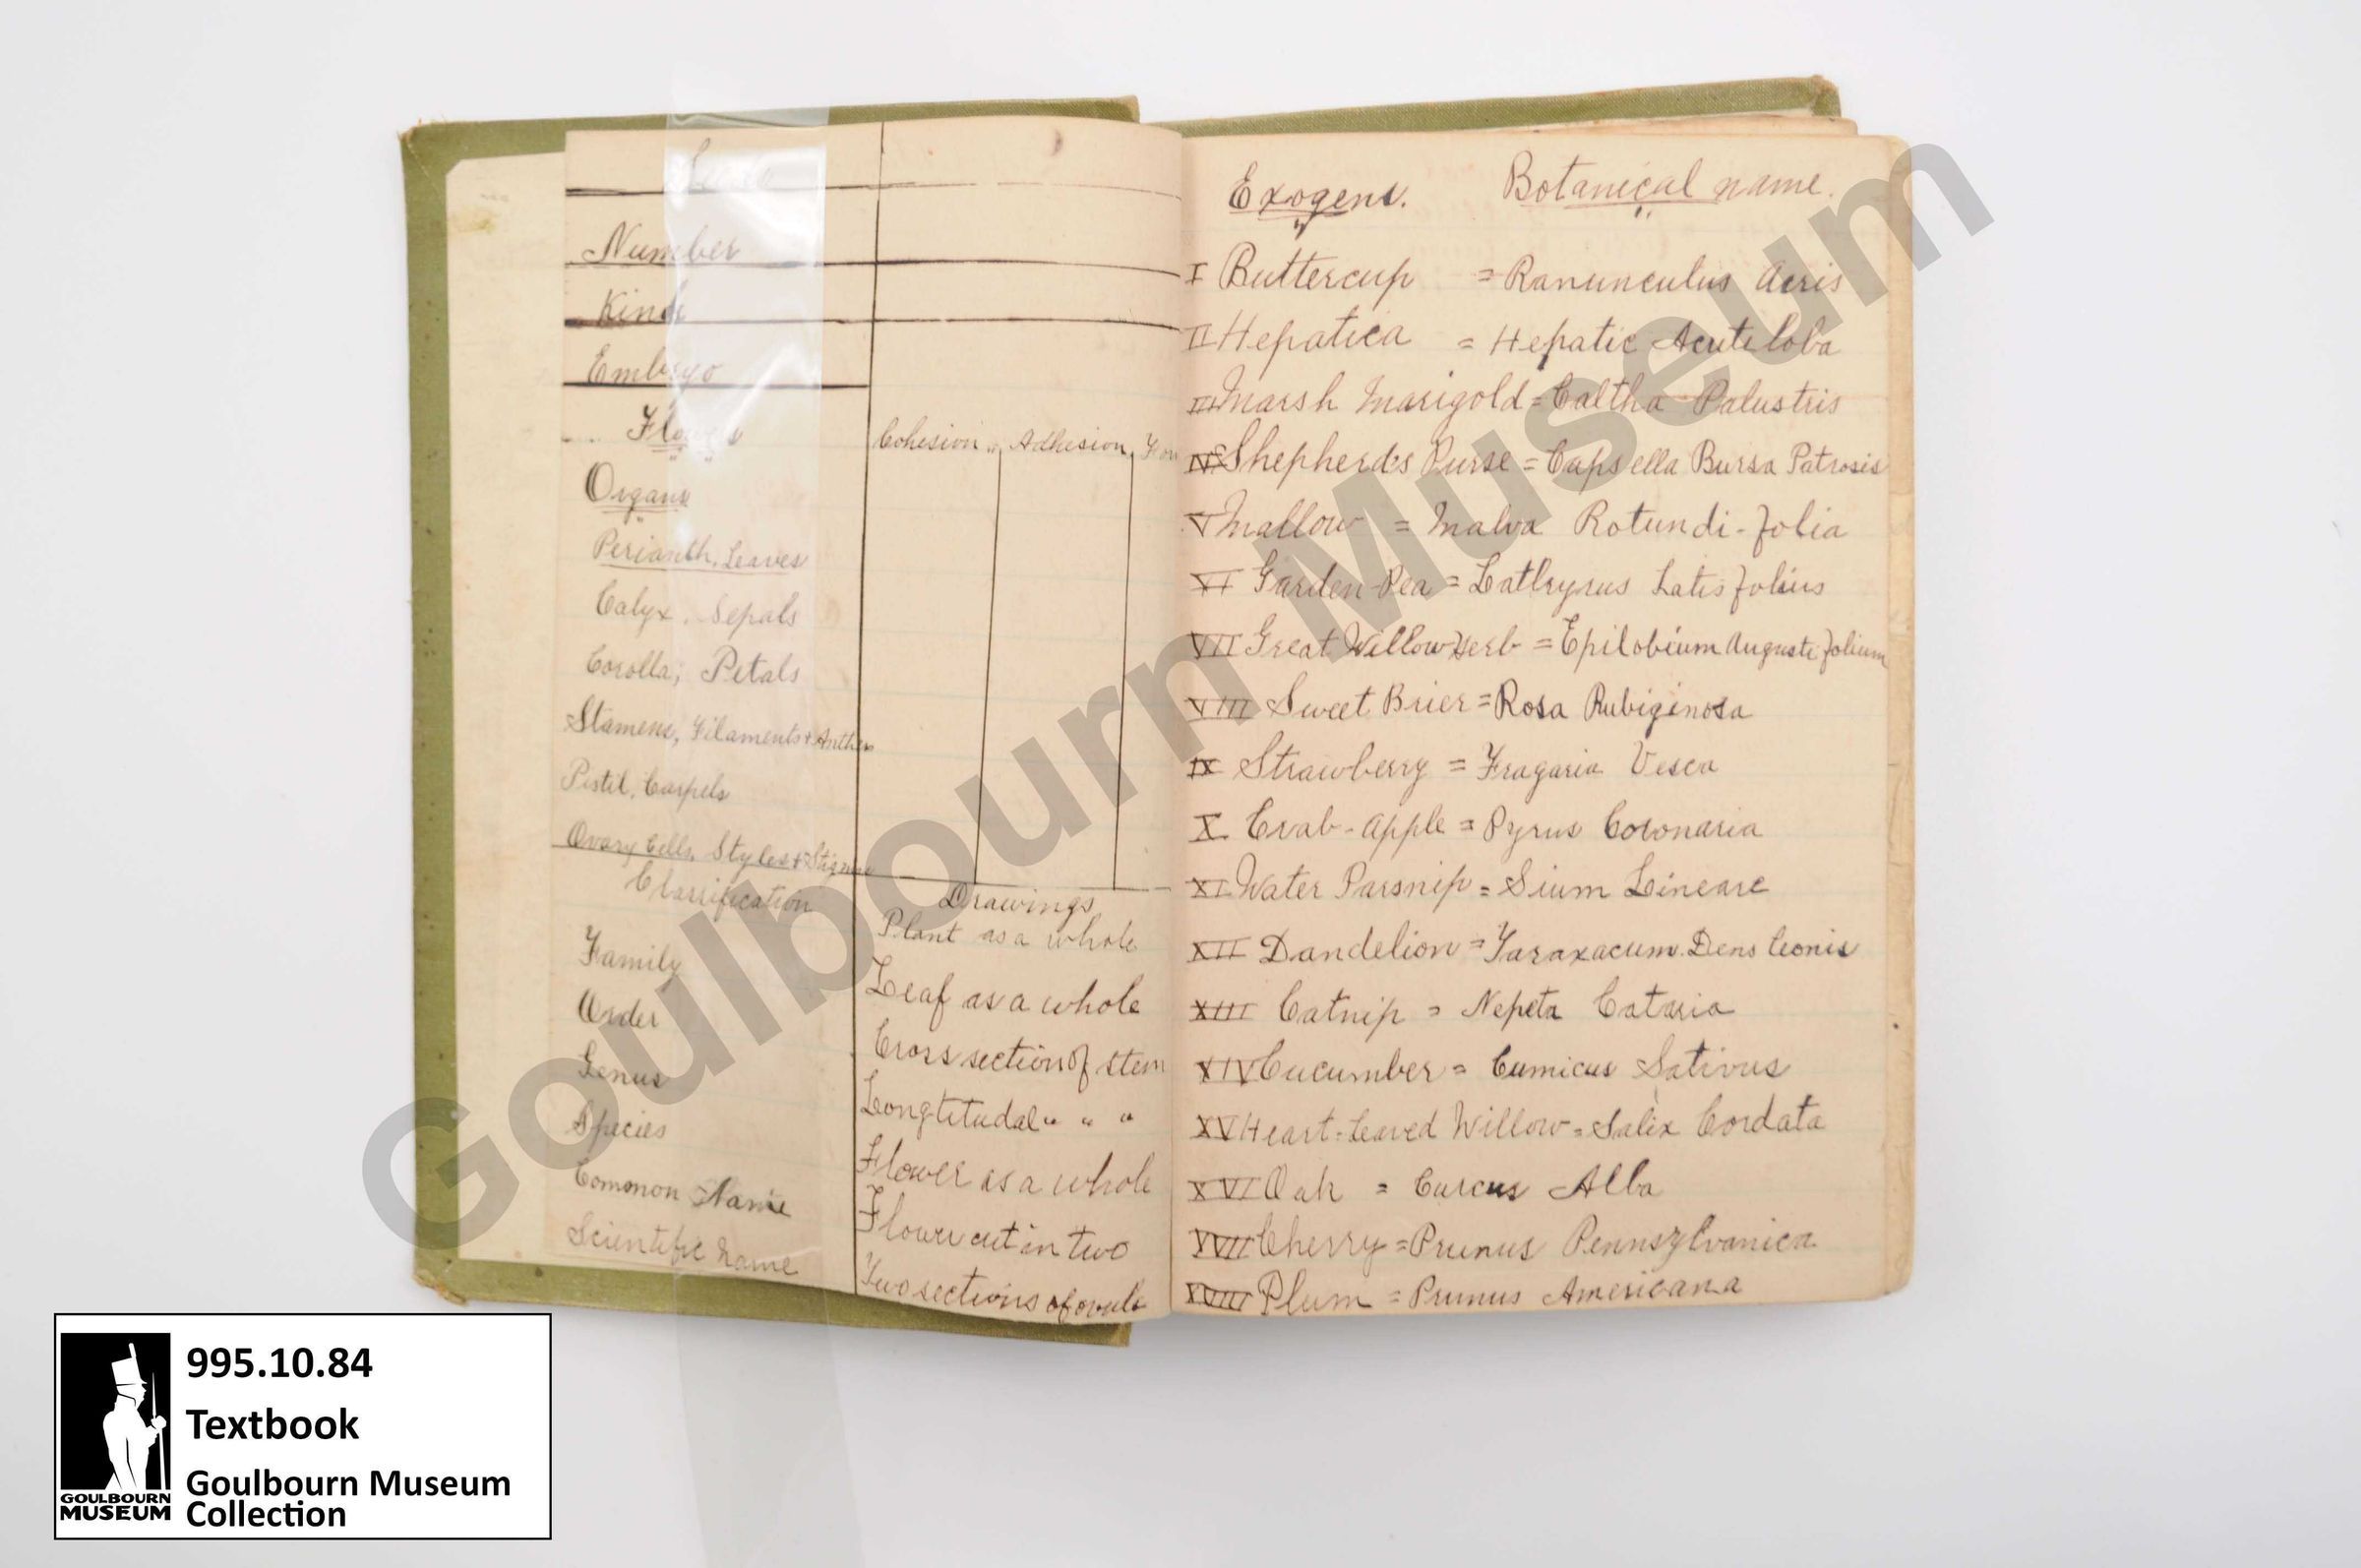 Number
Kind
Embryo
Flower
Cohesion Adhesion
Organs
Perianth, Leaves
Calyx, Sepals
Corolla, Petals
Stamens, Filaments + Anthers
Pistil, Carpels
Ovary Cells, Styles + Stigma
Classification
Family
Order
Genus
Species
Common Name
Scientific Name
Drawings
Plant as a whole
Leaf as a whole
Cross section of stem
Longtitudal " " "
Flower as a whole
Flower cut in two
Two sections of ovule
Exogens. Botanical name.
I Buttercup = Ranunculus Acris
II Hepatica = Hepatic Acutiloba
III Marsh Marigold = Caltha Palustris
IV Shepherd's Purse = Capsella Bursa Patrosis
V Mallow = Malva Rotundi-folia
VI Garden-Pea = Lathyrus Latisfolius
VII Great Willow Herb = Epilobium Augustifolium
VIII Sweet Brier = Rosa Rubiginosa
IX Strawberry = Fragaria Vesca
X Crab-apple = Pyrus Coronaria
XI Water Parsnip = Sium Lineare
XII Dandelion = Taraxacum Dens Leonis
XIII Catnip = Nepeta Cataria
XIV Cucumber = Cumicus Sativus
XV Heart-leaved Willow = Salix Cordata
XVI Oak = Curcus Alba
XVII Cherry = Prunus Pennsylvanica
XVIII Plum = Prunus Americana
Goulbourn Museum
995.10.84
Textbook
Goulbourn Museum
Collection
GOULBOURN
MUSEUM